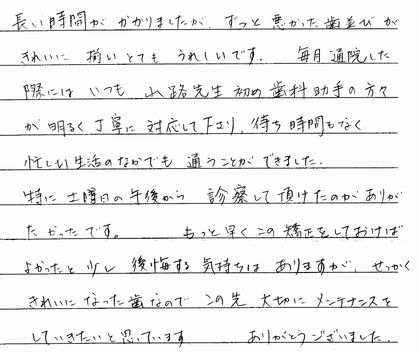 長い時間が かかりましたが、ずっと 悪かった 歯並びが
きれいに 揃い とても うれしいです。 毎月 通院した
際には いつも 山路先生 初め 歯科助手の 方々
が 明るく 丁寧に 対応して下さり、待ち時間もなく
忙しい 生活のなかでも 通うことが できました。
特に 土曜日の 午後から 診察して 頂けたのが ありが
たかったです。 もっと 早く この 矯正を しておけば
よかったと 少し 後悔する 気持ちは ありますが、せっかく
きれいに なった 歯なので この先 大切に メンテナンスを
していきたいと 思っています ありがとうございました。